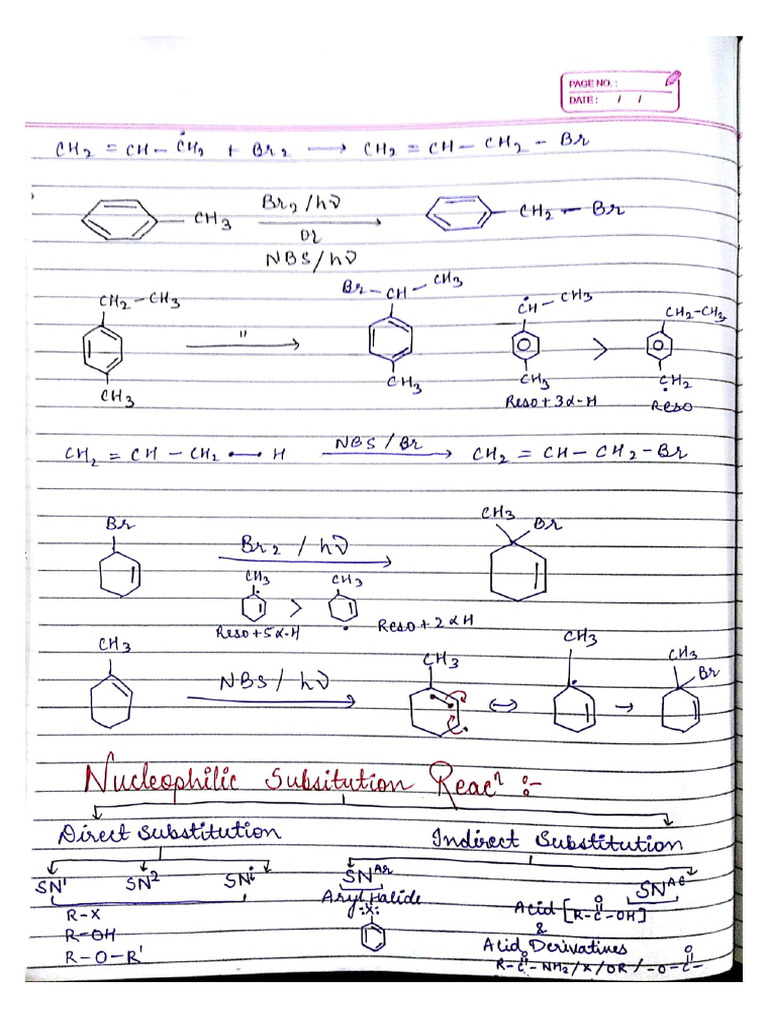 PAGE NO. :
DATE : / /
CH₂ = CH – ĊH₂ + Br₂ ⟶ CH₂ = CH – CH₂ – Br
CH₃ Br₂/hν CH₂ – Br
or
NBS/hν
CH₂ – CH₃ Br – CH – CH₃ ĊH – CH₃ CH₂–CH₃
" >
CH₃ CH₃ CH₃ CH₂
Reso + 3α-H Reso
CH₂ = CH – CH₂ •—• H NBS/Br ⟶ CH₂ = CH – CH₂ – Br
Br Br₂ / hν CH₃ Br
CH₃ > CH₃
Reso + 5α-H Reso + 2αH
CH₃ NBS / hν CH₃ ↔ CH₃ → CH₃ Br
Nucleophilic Subsitution Reacⁿ :-
Direct Substitution Indirect Substitution
SN¹ SN² SNⁱ SNᴬʳ SNᴬᶜ
R-X
R-OH
R-O-R'
Aryl Halide
:X:
Acid [R-C-OH]
O
&
Acid Derivatines
O O
R-C-NH₂/X/OR/-O-C-